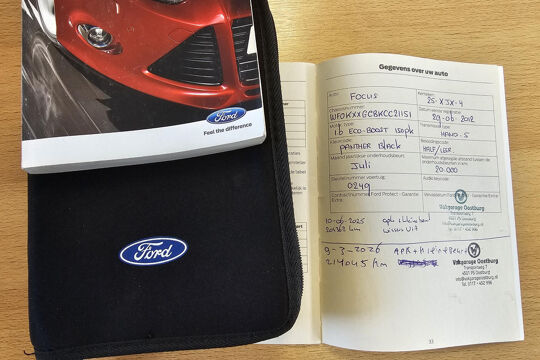 Ford
Feel the difference
Ford
Gegevens over uw auto
Auto: FOCUS
Kenteken: 25-XJX-4
Chassisnummer:
WF0KXXGCBKCC21151
Datum eerste registratie:
29-06-2012
Motor type:
1.6 ECO-BOOST 150pk
Transmissie type:
HAND-5
Kleurcode:
PANTHER BLACK
Bekledingscode:
HALF/LEER.
Maand jaarlijkse onderhoudsbeurt:
Juli
Maximum afgelegde afstand tussen de
onderhoudsbeurten in km:
20.000
Sleutelnummer voertuig:
0249
Audio keycode:
Contactnummer Ford Protect - Garantie
Extra:
Vakgarage Oostburg
Transportweg 7
4501 PS Oostburg
info@vakgarageoostburg.nl
Tel. 0117 - 452 996
10-06-2025
km
apk + kleine beurt
wissen uit
9-3-2026
214045 km
APK + kleine beurt
Vakgarage Oostburg
Transportweg 7
4501 PS Oostburg
info@vakgarageoostburg.nl
Tel. 0117 - 452 996
33